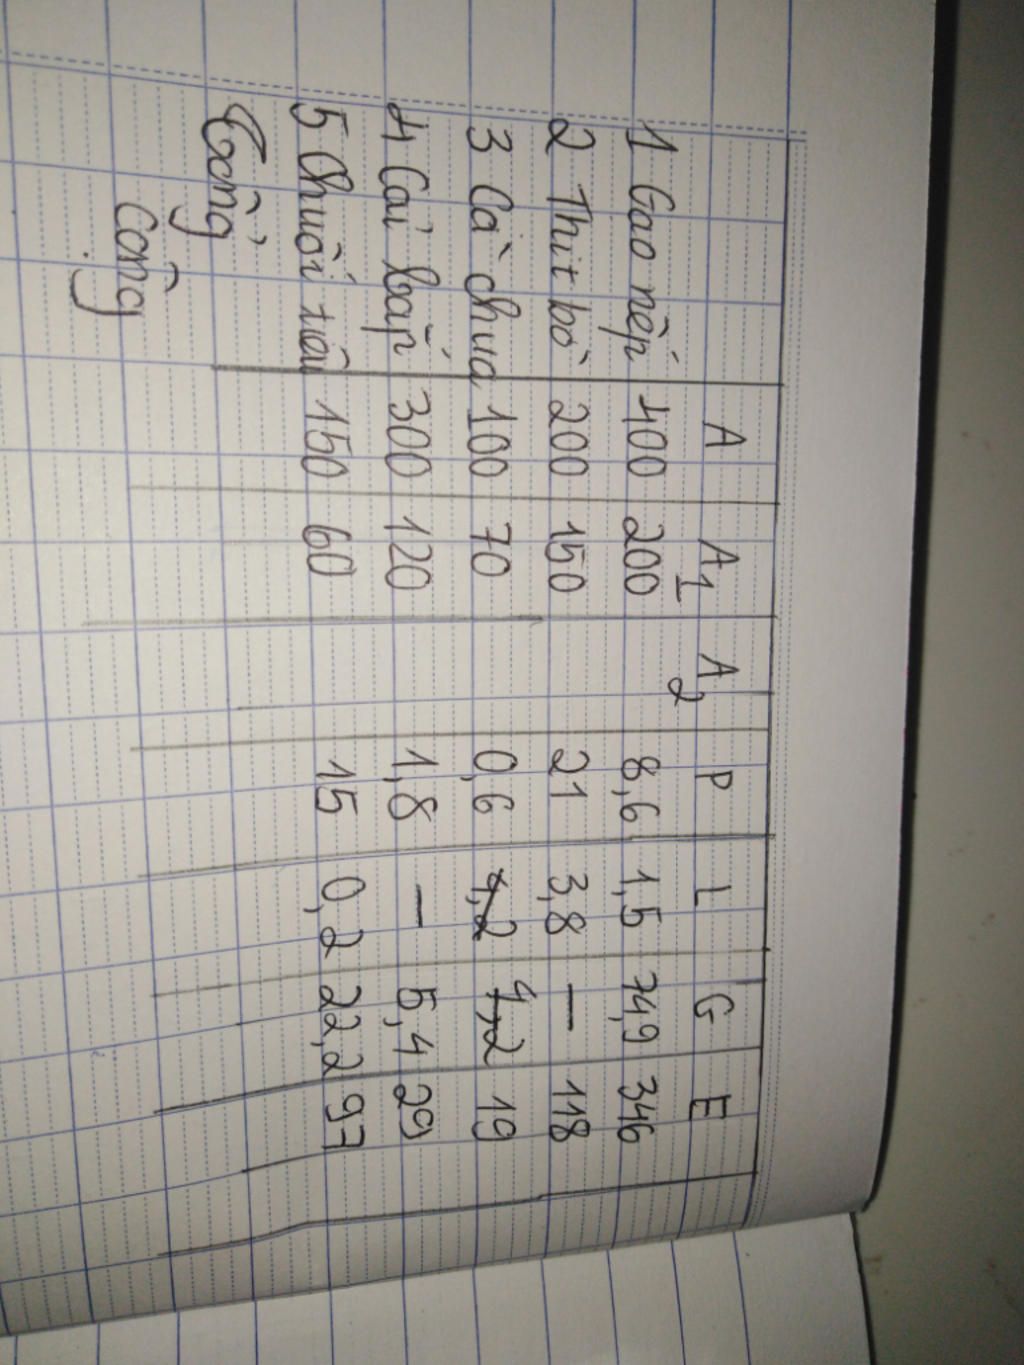 A A1 A2 P L G E
1 Gạo nếp 400 200 8,6 1,5 74,9 346
2 Thịt bò 200 150 21 3,8 — 118
3 Cà chua 100 70 0,6 4,2 19
4 Cải bắp 300 120 1,8 — 5,4 29
5 Chuối tiêu 150 60 15 0,2 22,2 97
Tổng
cộng